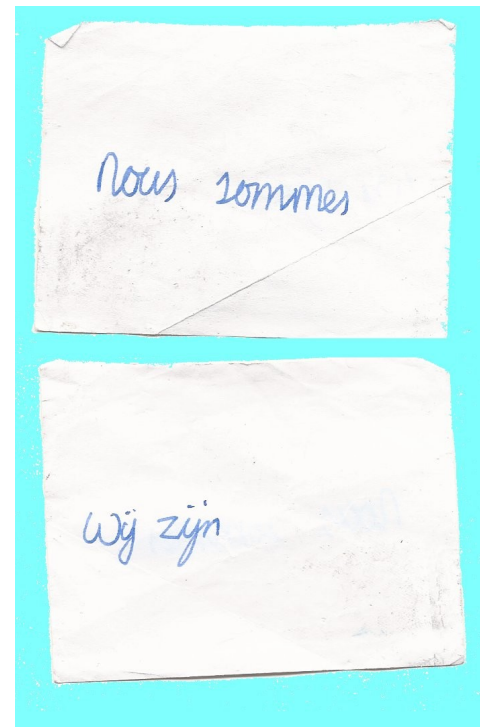 nous sommes
wij zijn